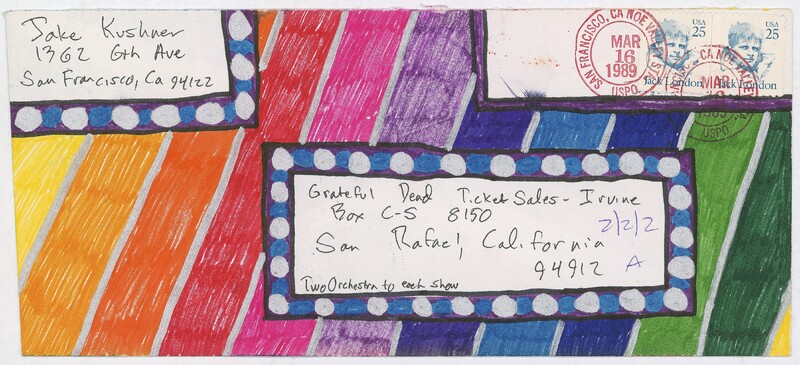 Jake Kushner
1362 6th Ave
San Francisco, Ca 94122
SAN FRANCISCO, CA NOE VALLEY
MAR
16
1989
USPO
USA
25
Jack London
USA
25
Jack London
CA NOE VALLEY
MAR
1989
USPO
Grateful Dead Ticket Sales - Irvine
Box C-S 8150
2/2/2
San Rafael, California
94912 A
Two Orchestra to each show